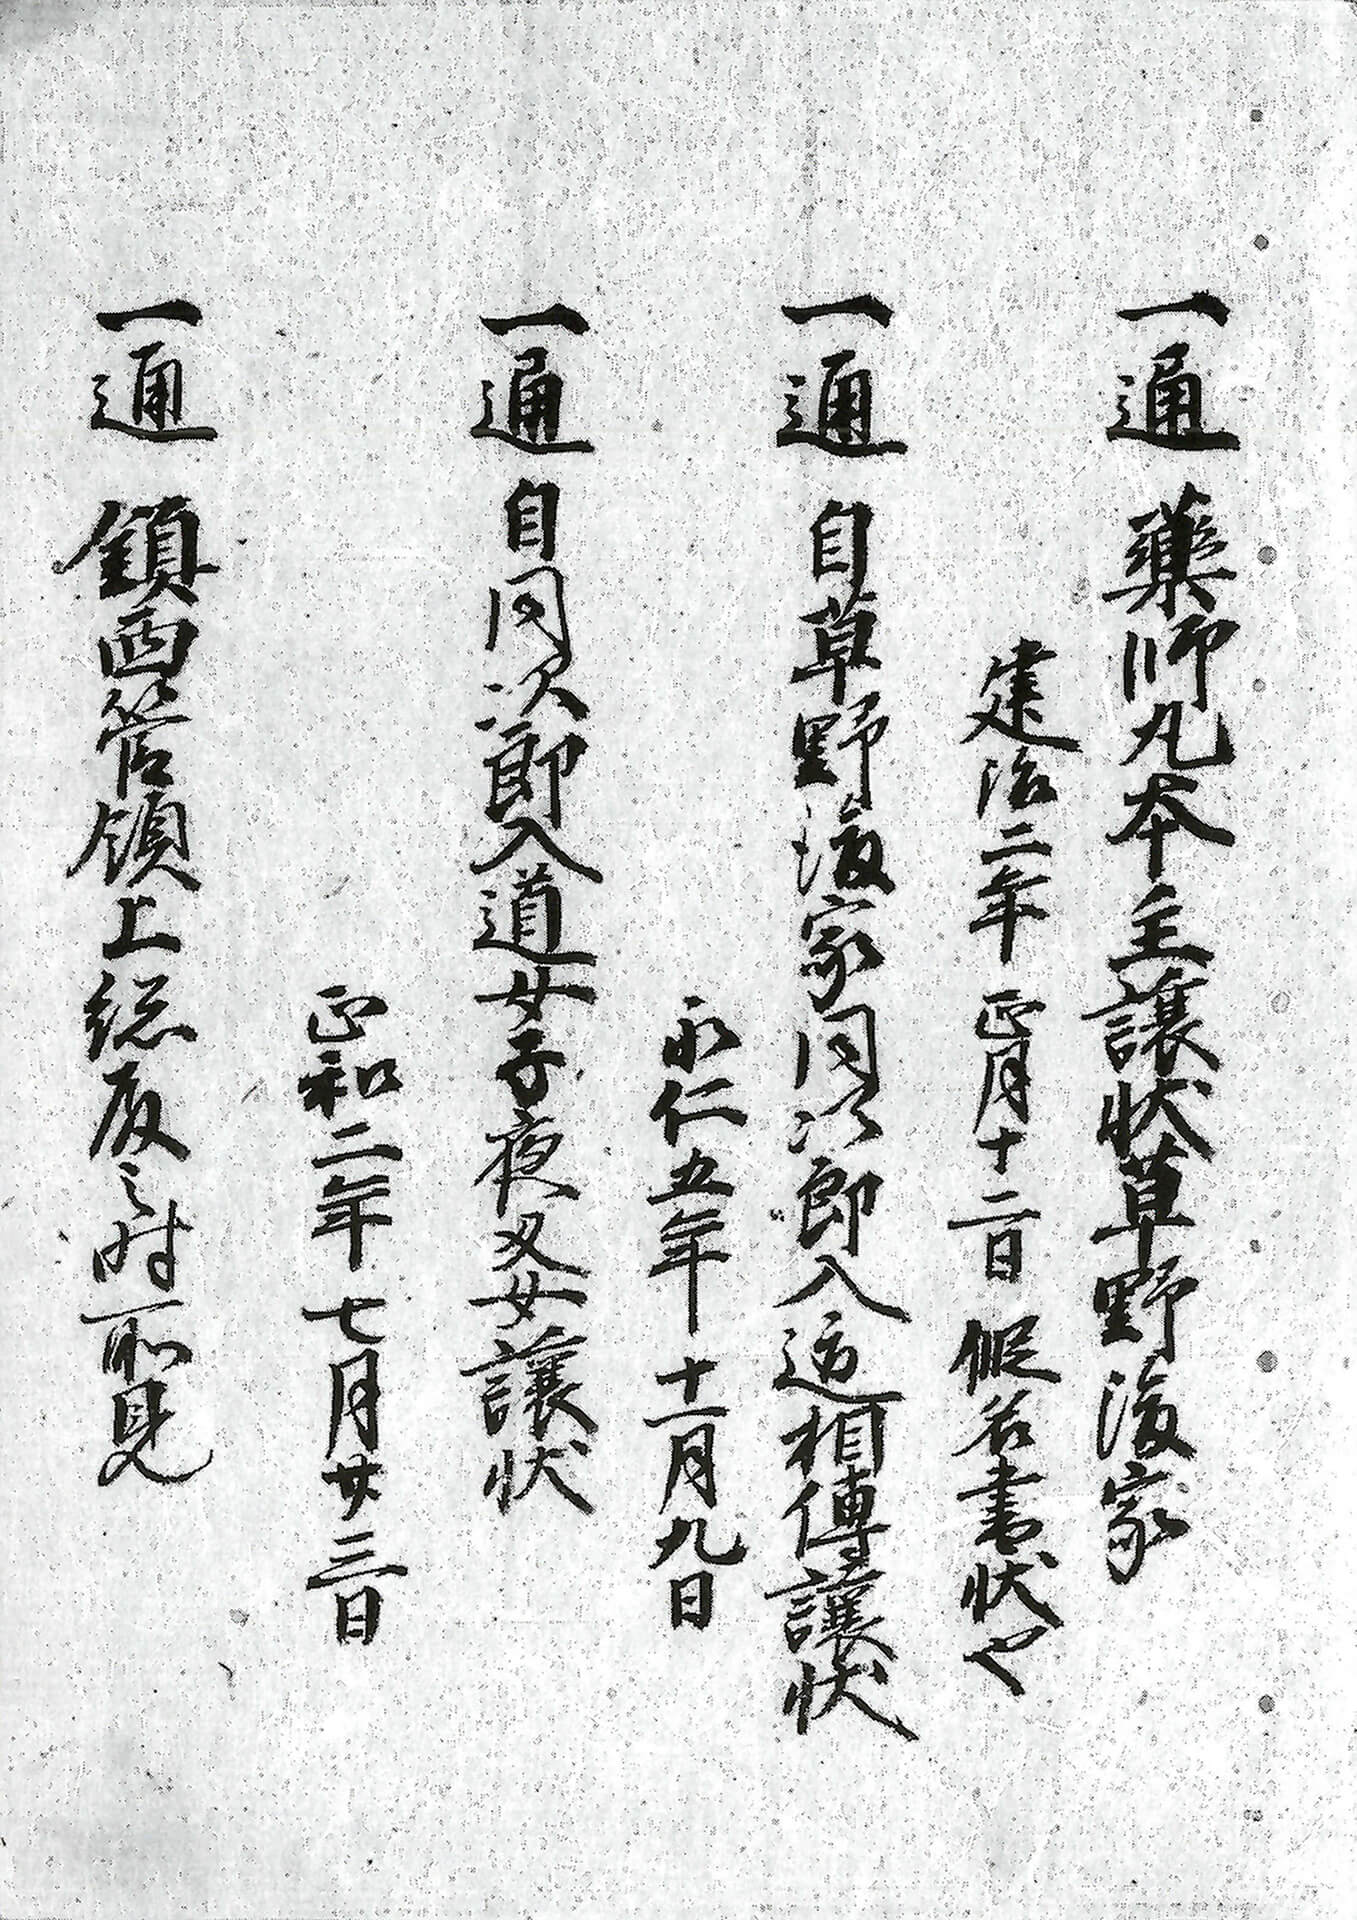 一通 藥師丸本主讓状草野後家
建治二年正月十二日 假名書状也
一通 自草野後家同次郎入道相傳讓状
永仁五年十一月九日
一通 自同次郎入道女子夜叉女讓状
正和二年七月廿三日
一通 鎮西管領上総殿之時所見